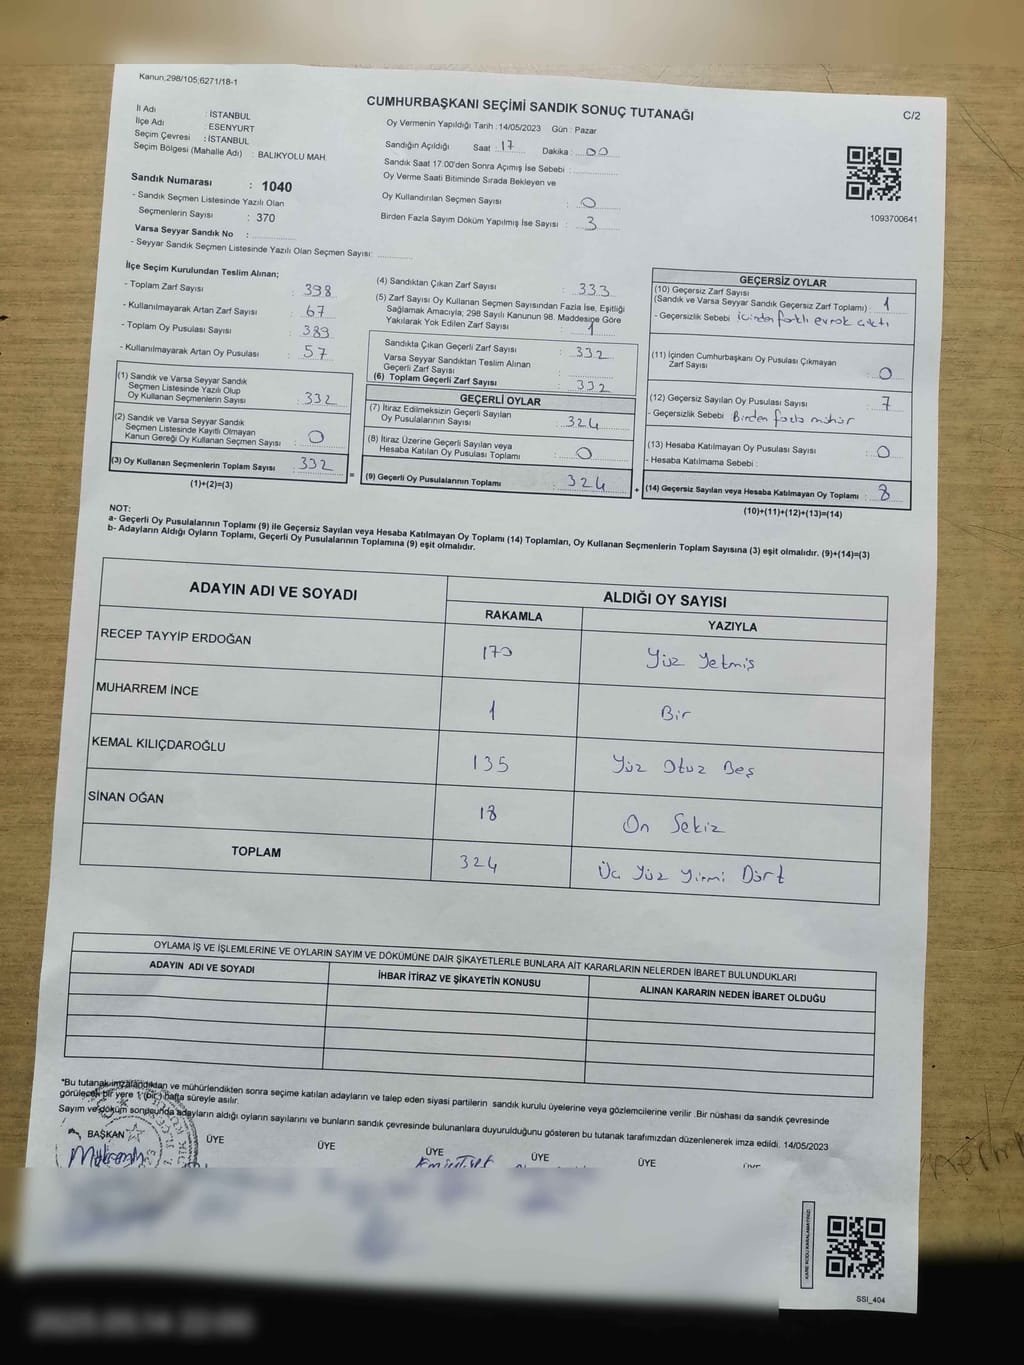 Kanun;298/105;6271/18-1
CUMHURBAŞKANI SEÇİMİ SANDIK SONUÇ TUTANAĞI
C/2
İl Adı : İSTANBUL
İlçe Adı : ESENYURT
Seçim Çevresi : İSTANBUL
Seçim Bölgesi (Mahalle Adı) : BALIKYOLU MAH.
Oy Vermenin Yapıldığı Tarih : 14/05/2023 Gün : Pazar
Sandığın Açıldığı Saat : 17 Dakika : 00
Sandık Saat 17:00'den Sonra Açımış İse Sebebi :
Oy Verme Saati Bitiminde Sırada Bekleyen ve
Oy Kullandırılan Seçmen Sayısı : 0
Birden Fazla Sayım Döküm Yapılmış İse Sayısı : 3
1093700641
Sandık Numarası : 1040
- Sandık Seçmen Listesinde Yazılı Olan
Seçmenlerin Sayısı : 370
Varsa Seyyar Sandık No :
- Seyyar Sandık Seçmen Listesinde Yazılı Olan Seçmen Sayısı:
İlçe Seçim Kurulundan Teslim Alınan;
- Toplam Zarf Sayısı : 398
- Kullanılmayarak Artan Zarf Sayısı : 67
- Toplam Oy Pusulası Sayısı : 389
- Kullanılmayarak Artan Oy Pusulası : 57
(1) Sandık ve Varsa Seyyar Sandık
Seçmen Listesinde Yazılı Olup
Oy Kullanan Seçmenlerin Sayısı : 332
(2) Sandık ve Varsa Seyyar Sandık
Seçmen Listesinde Kayıtlı Olmayan
Kanun Gereği Oy Kullanan Seçmen Sayısı : 0
(3) Oy Kullanan Seçmenlerin Toplam Sayısı : 332
(1)+(2)=(3)
(4) Sandıktan Çıkan Zarf Sayısı : 333
(5) Zarf Sayısı Oy Kullanan Seçmen Sayısından Fazla İse, Eşitliği
Sağlamak Amacıyla; 298 Sayılı Kanunun 98. Maddesine Göre
Yakılarak Yok Edilen Zarf Sayısı : 1
Sandıkta Çıkan Geçerli Zarf Sayısı : 332
Varsa Seyyar Sandıktan Teslim Alınan
Geçerli Zarf Sayısı :
(6) Toplam Geçerli Zarf Sayısı : 332
GEÇERLİ OYLAR
(7) İtiraz Edilmeksizin Geçerli Sayılan
Oy Pusulalarının Sayısı : 324
(8) İtiraz Üzerine Geçerli Sayılan veya
Hesaba Katılan Oy Pusulası Toplamı : 0
=
(9) Geçerli Oy Pusulalarının Toplamı : 324
+
GEÇERSİZ OYLAR
(10) Geçersiz Zarf Sayısı
(Sandık ve Varsa Seyyar Sandık Geçersiz Zarf Toplamı) : 1
- Geçersizlik Sebebi : içinden farklı evrak çıktı
(11) İçinden Cumhurbaşkanı Oy Pusulası Çıkmayan
Zarf Sayısı : 0
(12) Geçersiz Sayılan Oy Pusulası Sayısı : 7
- Geçersizlik Sebebi : Birden fazla mühür
(13) Hesaba Katılmayan Oy Pusulası Sayısı : 0
- Hesaba Katılmama Sebebi :
(14) Geçersiz Sayılan veya Hesaba Katılmayan Oy Toplamı : 8
(10)+(11)+(12)+(13)=(14)
NOT:
a- Geçerli Oy Pusulalarının Toplamı (9) ile Geçersiz Sayılan veya Hesaba Katılmayan Oy Toplamı (14) Toplamları, Oy Kullanan Seçmenlerin Toplam Sayısına (3) eşit olmalıdır. (9)+(14)=(3)
b- Adayların Aldığı Oyların Toplamı, Geçerli Oy Pusulalarının Toplamına (9) eşit olmalıdır.
ADAYIN ADI VE SOYADI
ALDIĞI OY SAYISI
RAKAMLA YAZIYLA
RECEP TAYYİP ERDOĞAN 170 Yüz Yetmiş
MUHARREM İNCE 1 Bir
KEMAL KILIÇDAROĞLU 135 Yüz Otuz Beş
SİNAN OĞAN 18 On Sekiz
TOPLAM 324 Üç Yüz Yirmi Dört
OYLAMA İŞ VE İŞLEMLERİNE VE OYLARIN SAYIM VE DÖKÜMÜNE DAİR ŞİKAYETLERLE BUNLARA AİT KARARLARIN NELERDEN İBARET BULUNDUKLARI
ADAYIN ADI VE SOYADI İHBAR İTİRAZ VE ŞİKAYETİN KONUSU ALINAN KARARIN NEDEN İBARET OLDUĞU
*Bu tutanak imzalandıktan ve mühürlendikten sonra seçime katılan adayların ve talep eden siyasi partilerin sandık kurulu üyelerine veya gözlemcilerine verilir .Bir nüshası da sandık çevresinde
görülecek bir yere 1 (bir) hafta süreyle asılır.
Sayım ve döküm sonucunda adayların aldığı oyların sayılarını ve bunların sandık çevresinde bulunanlara duyurulduğunu gösteren bu tutanak tarafımızdan düzenlenerek imza edildi. 14/05/2023
BAŞKAN ÜYE ÜYE ÜYE ÜYE ÜYE
SSI_404